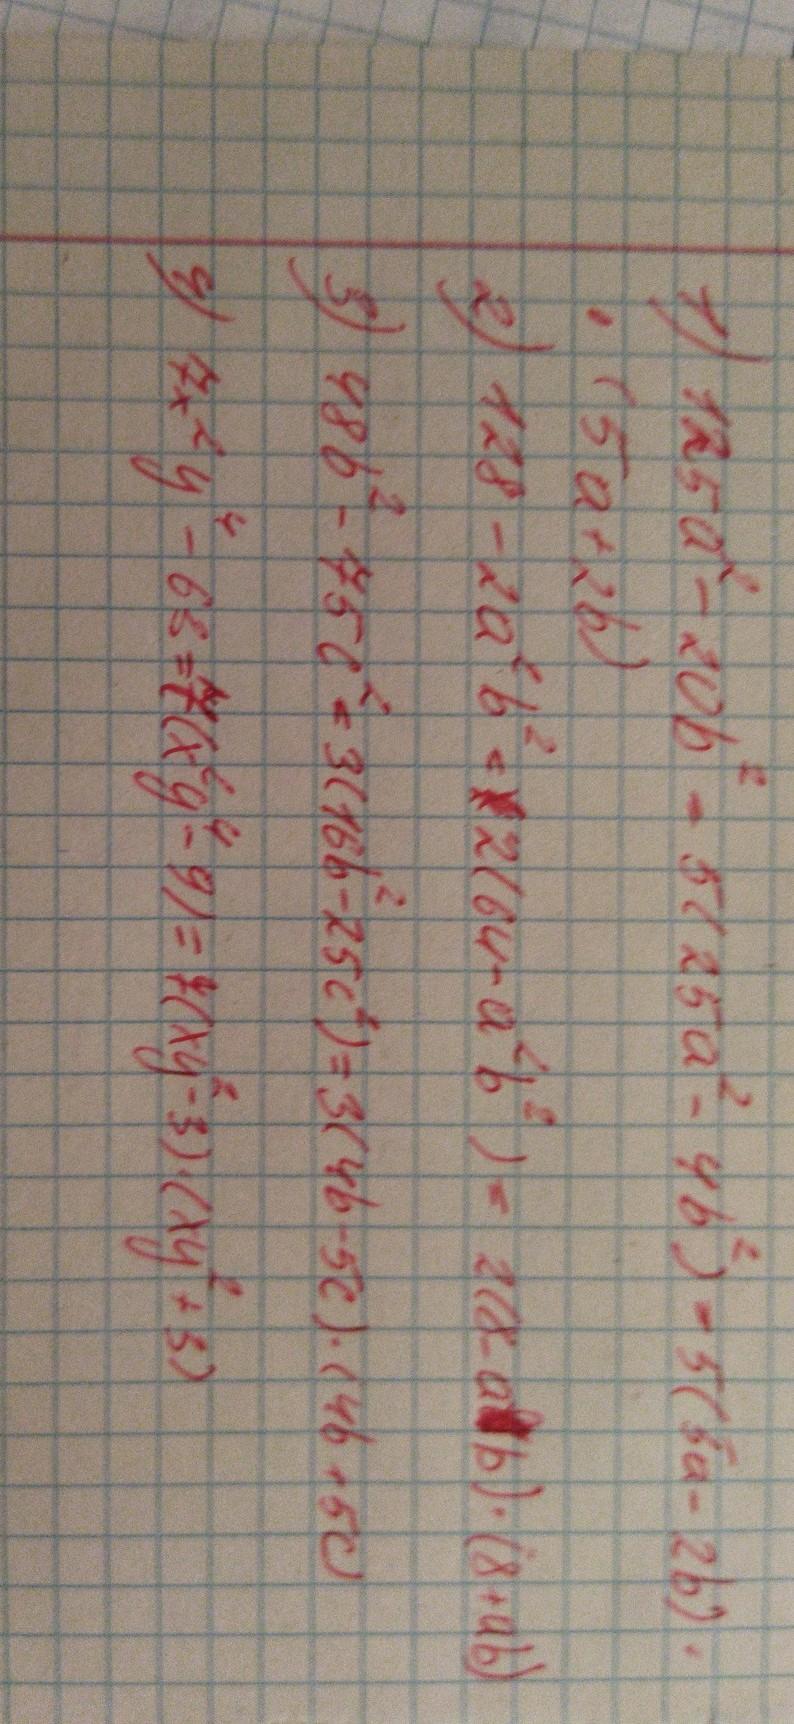 1) 125a² - 20b² = 5(25a² - 4b²) = 5(5a - 2b) ·
· (5a + 2b)
2) 128 - 2a²b² = 2(64 - a²b²) = 2(8 - ab) · (8 + ab)
3) 48b² - 75c² = 3(16b² - 25c²) = 3(4b - 5c) · (4b + 5c)
4) 7x²y⁴ - 63 = 7(x²y⁴ - 9) = 7(xy² - 3) · (xy² + 3)